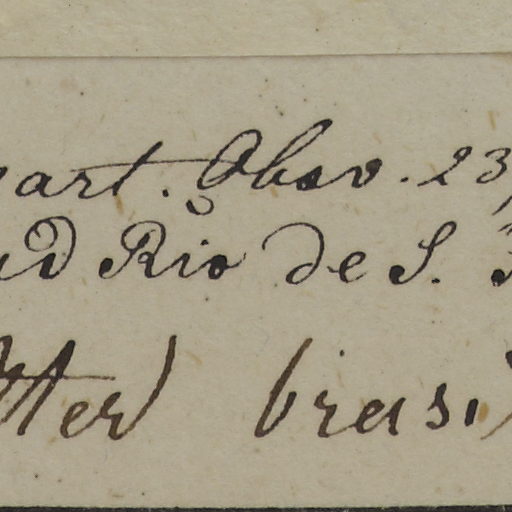 art. Obsv. 23,
ad Rio de S.
Iter brasi